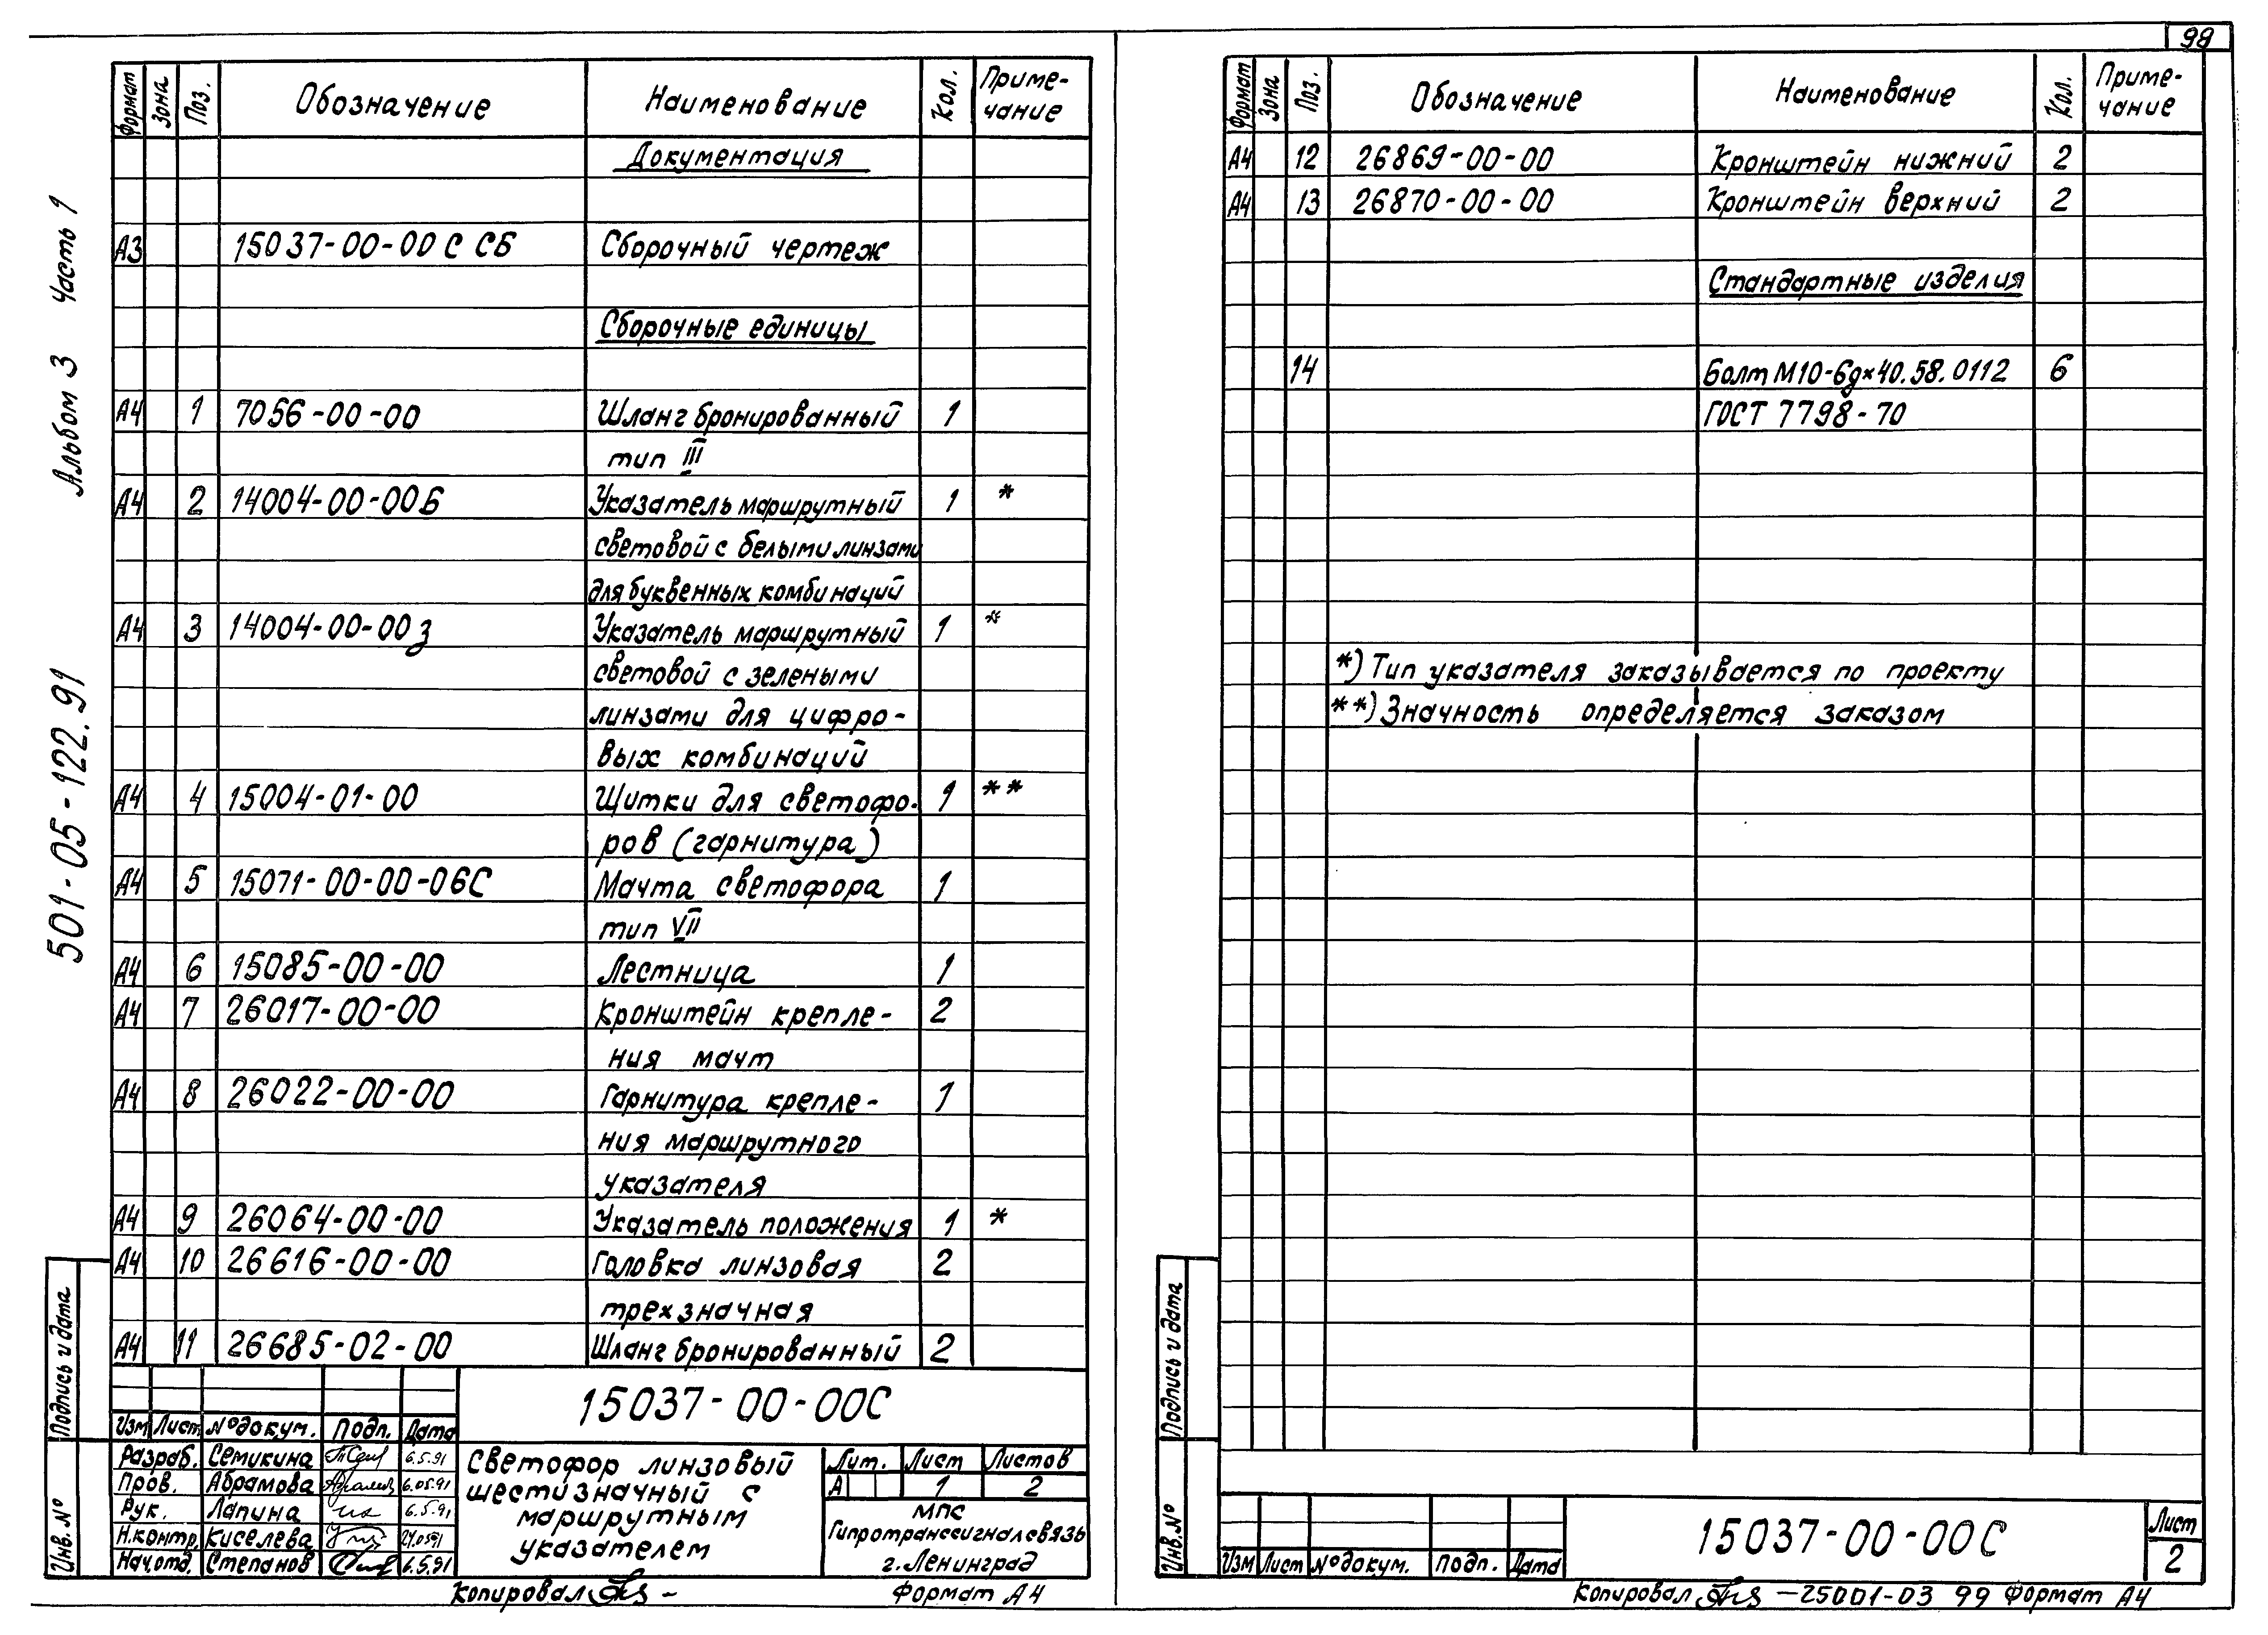 98
Альбом 3 Часть 1
501-05-122.91
Формат Зона Поз. Обозначение Наименование Кол. Приме-
чание
Документация
А3 15037-00-00 С СБ Сборочный чертеж
Сборочные единицы
А4 1 7056-00-00 Шланг бронированный 1
тип III
А4 2 14004-00-00Б Указатель маршрутный 1 *
световой с белыми линзами
для буквенных комбинаций
А4 3 14004-00-00з Указатель маршрутный 1 *
световой с зелеными
линзами для цифро-
вых комбинаций
А4 4 15004-01-00 Щитки для светофо- 1 **
ров (гарнитура)
А4 5 15071-00-00-06С Мачта светофора 1
тип VII
А4 6 15085-00-00 Лестница 1
А4 7 26017-00-00 Кронштейн крепле- 2
ния мачт
А4 8 26022-00-00 Гарнитура крепле- 1
ния маршрутного
указателя
А4 9 26064-00-00 Указатель положения 1 *
А4 10 26616-00-00 Головка линзовая 2
трехзначная
А4 11 26685-02-00 Шланг бронированный 2
Подпись и дата
Инв. №
15037-00-00С
Изм Лист № докум. Подп. Дата
Разраб. Семикина 6.5.91
Пров. Абрамова 6.05.91
Рук. Лапина 6.5.91
Н.контр. Киселева
Нач.отд. Степанов 6.5.91
Светофор линзовый
шестизначный с
маршрутным
указателем
Лит. Лист Листов
А 1 2
МПС
Гипротранссигналсвязь
г. Ленинград
Копировал
Формат А4
Формат Зона Поз. Обозначение Наименование Кол. Приме-
чание
А4 12 26869-00-00 Кронштейн нижний 2
А4 13 26870-00-00 Кронштейн верхний 2
Стандартные изделия
14 Болт М10-6g×40.58.0112 6
ГОСТ 7798-70
*) Тип указателя заказывается по проекту
**) Значность определяется заказом
Подпись и дата
Инв. №
Изм Лист № докум. Подп. Дата
15037-00-00С
Лист
2
Копировал — 25001-03 99 Формат А4